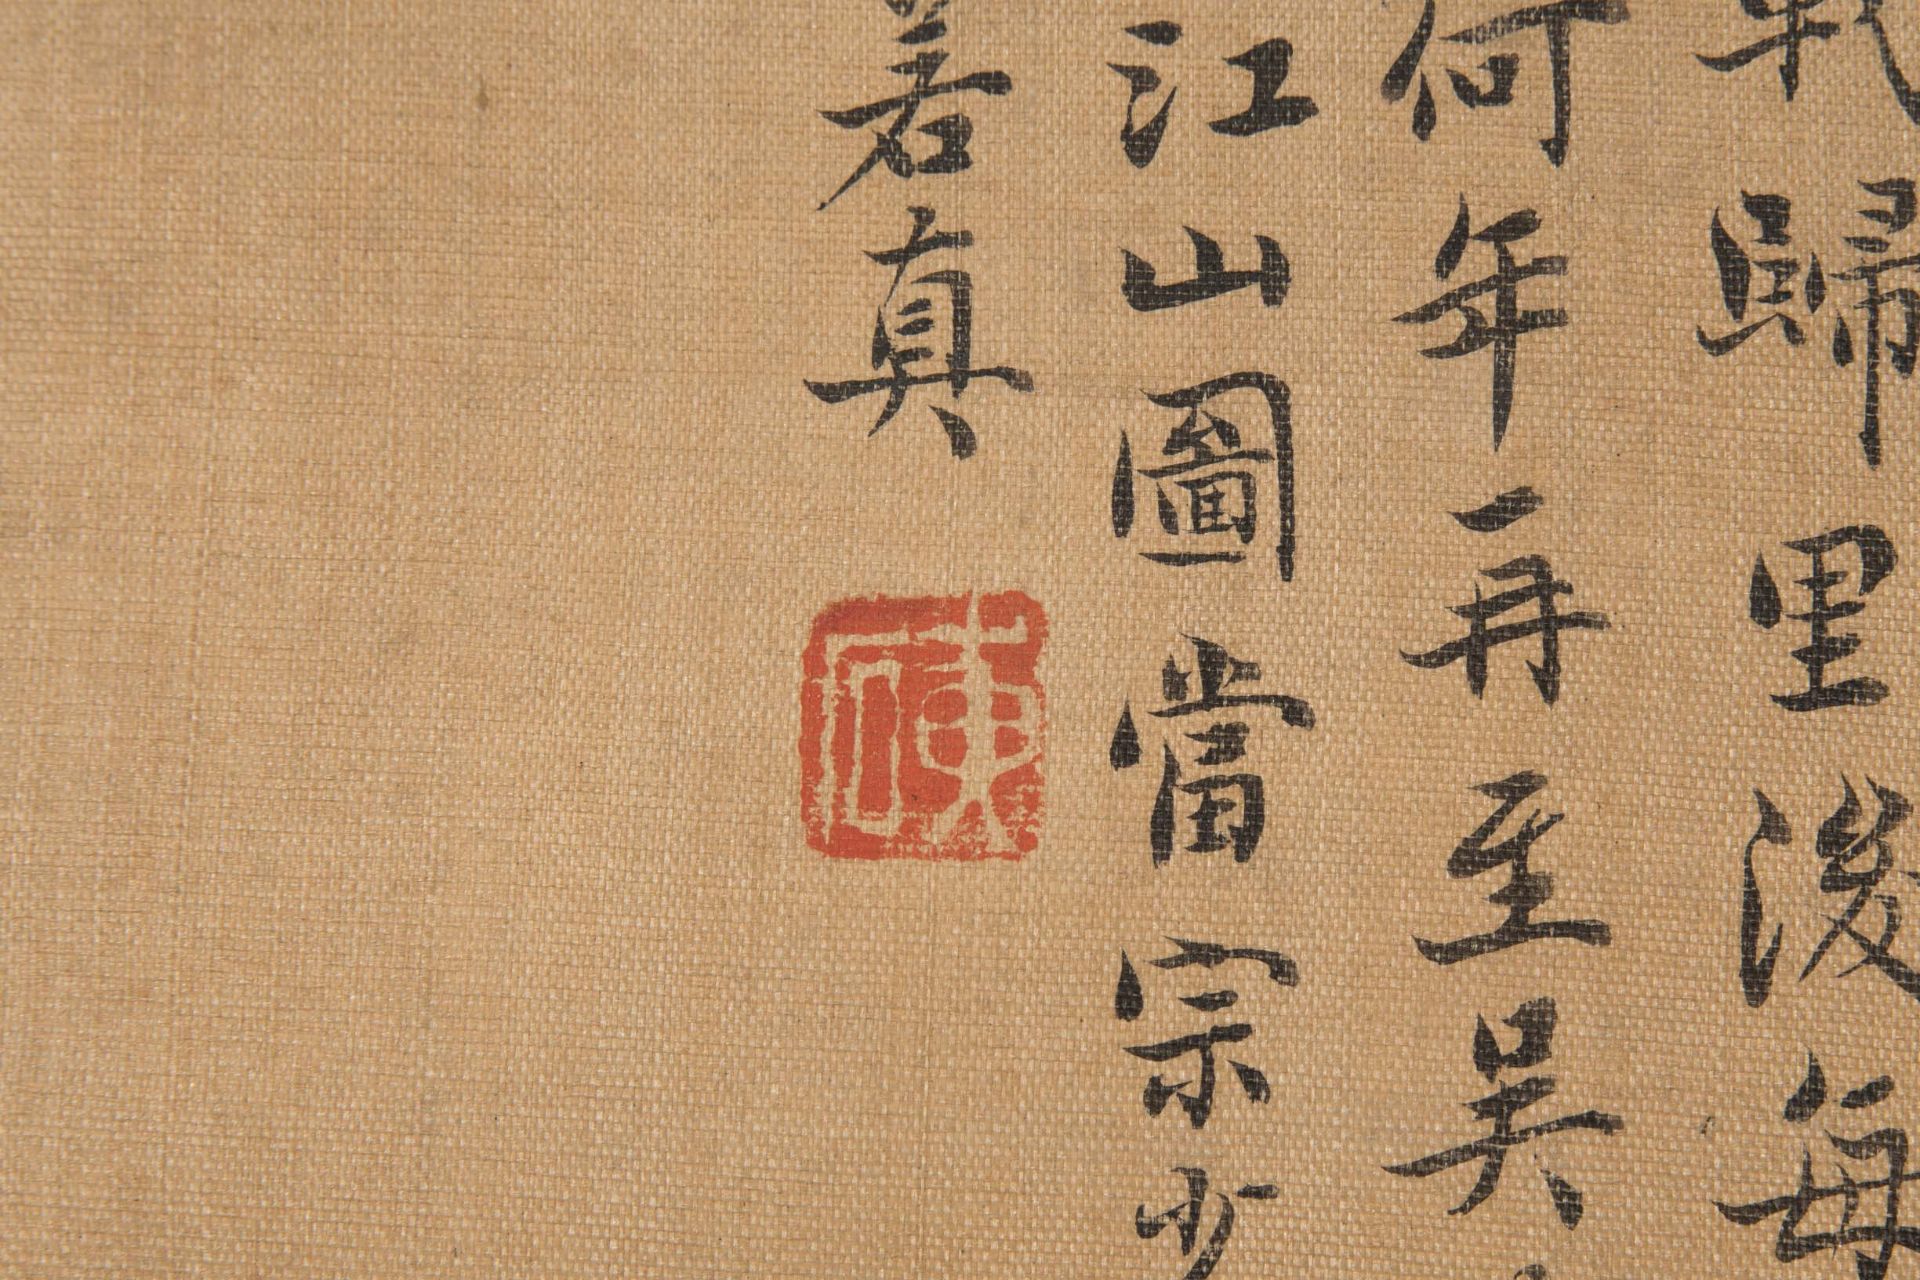 歸里後每
何年再至吳
江山圖當宗少
若真